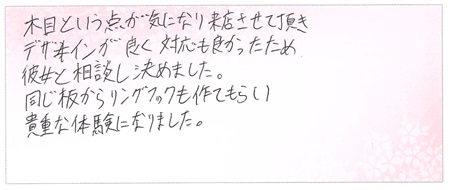 木目という点が気になり来店させて頂き
デザインが良く対応も良かったため
彼女と相談し決めました。
同じ板からリングフックも作てもらい
貴重な体験になりました。